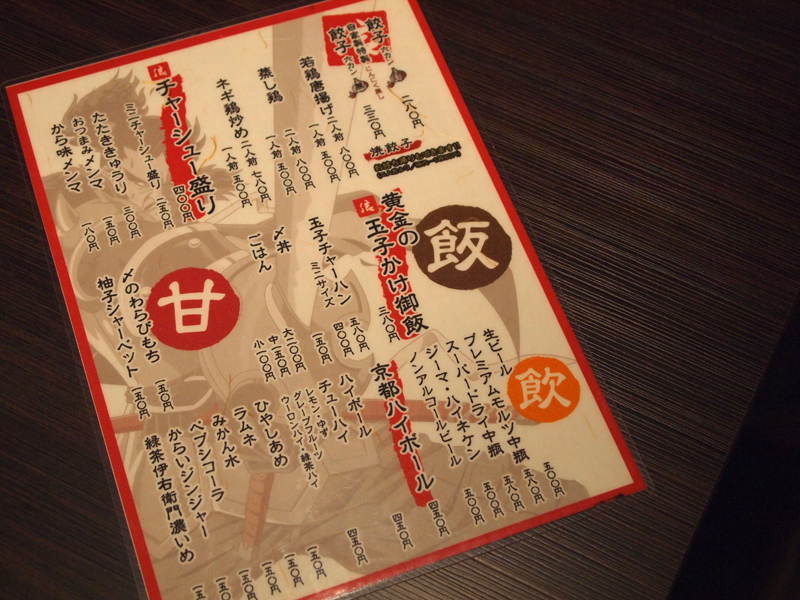 餃子 六カン 二八〇円
自家製特製
餃子 六カン 三三〇円
にんにく無し
焼餃子
若鶏唐揚げ 二人前 八〇〇円
一人前 五〇〇円
蒸し鶏 二人前 八〇〇円
一人前 五〇〇円
ネギ鶏炒め 二人前 七八〇円
一人前 五〇〇円
チャーシュー盛り 四〇〇円
ミニチャーシュー盛り 二五〇円
たたききゅうり 三〇〇円
おつまみメンマ 一五〇円
から味メンマ 一八〇円
飯
黄金の
玉子かけ御飯 三八〇円
玉子チャーハン 五八〇円
ミニサイズ 四〇〇円
〆丼 一五〇円
ごはん 大二〇〇円
中一五〇円
小一〇〇円
甘
〆のわらびもち 一五〇円
柚子シャーベット 一五〇円
飲
生ビール 五〇〇円
プレミアムモルツ中瓶 五八〇円
スーパードライ中瓶 五八〇円
ジーマ・ハイネケン 五〇〇円
ノンアルコールビール
京都ハイボール 四五〇円
ハイボール 四五〇円
チューハイ 四五〇円
レモン・ゆず
グレープフルーツ
ウーロンハイ・緑茶ハイ
ひやしあめ 一五〇円
ラムネ 一五〇円
みかん水
ペプシコーラ
からいジンジャー
緑茶伊右衛門濃いめ